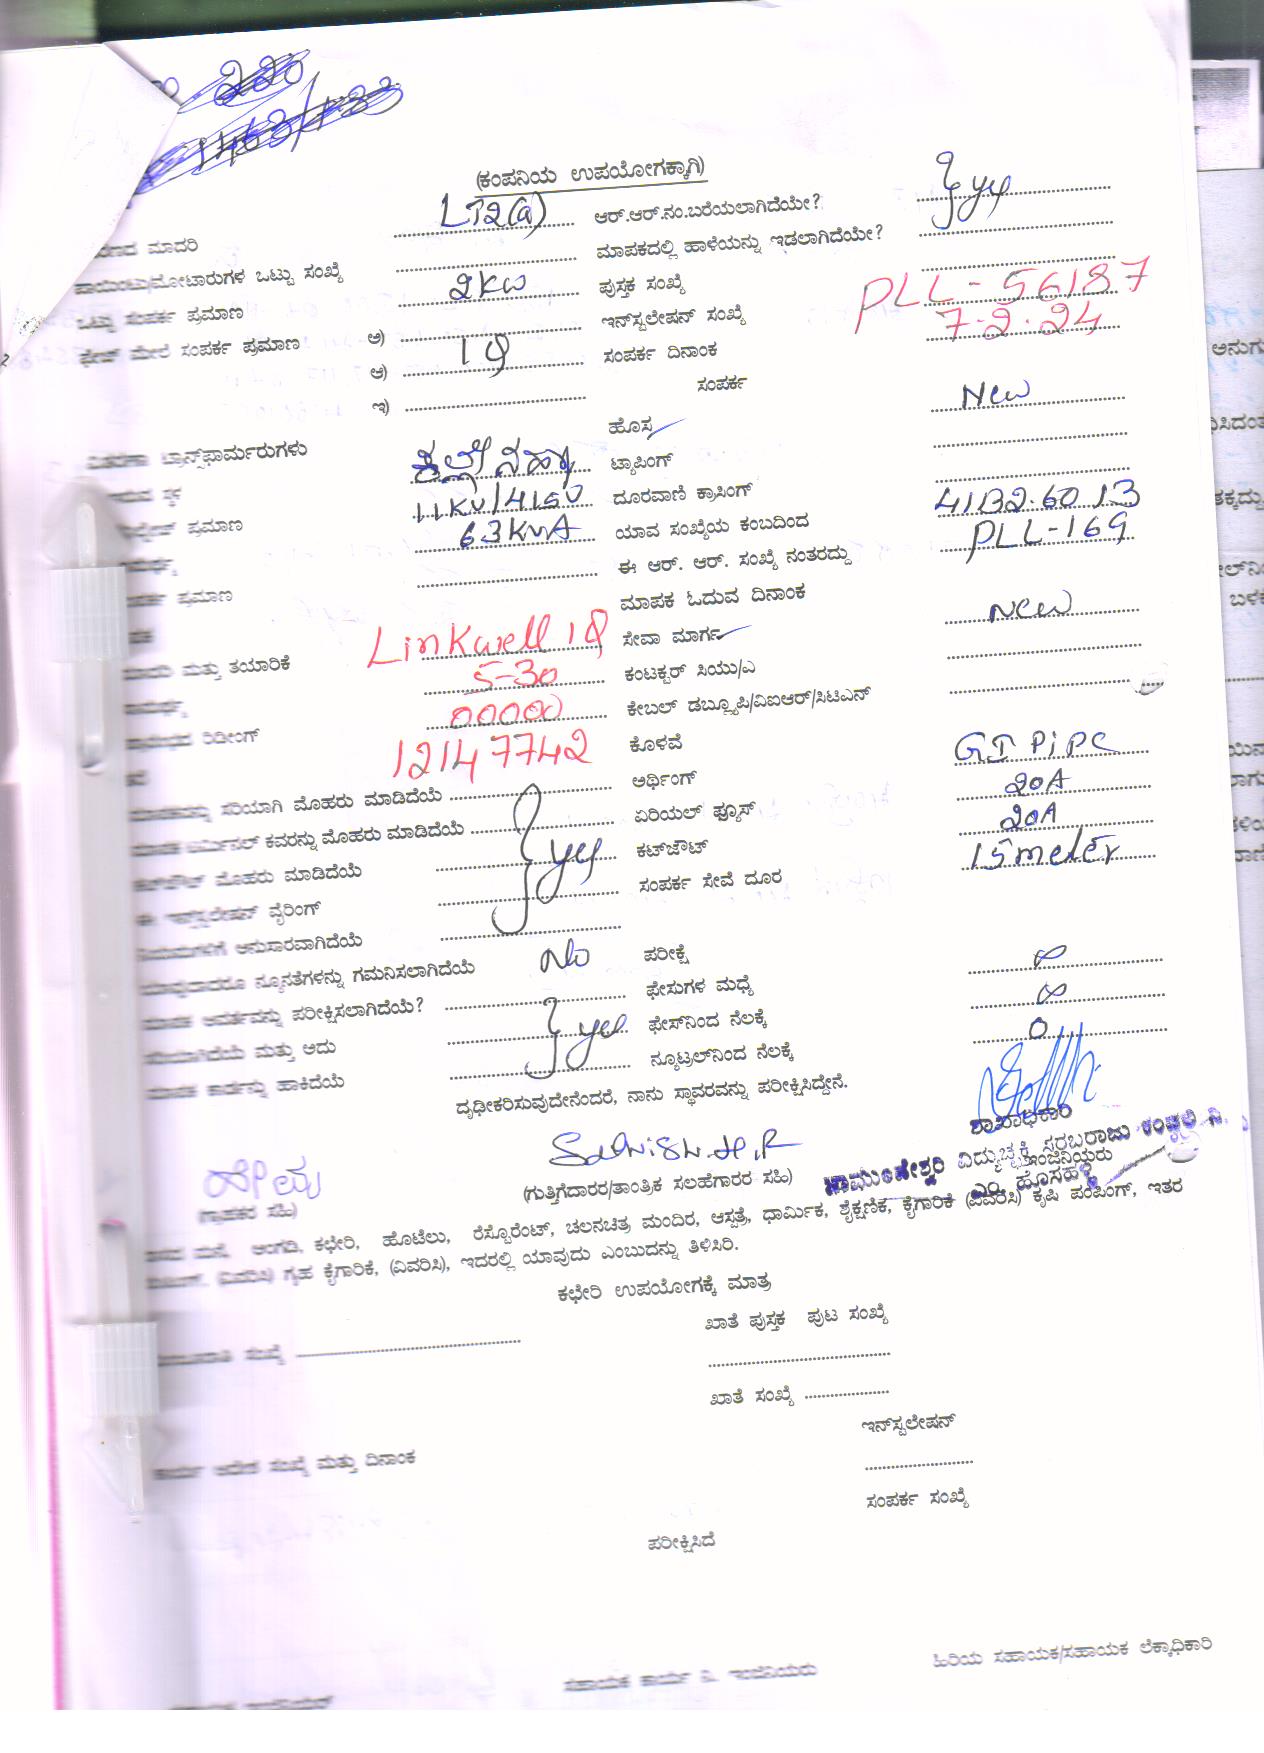 (ಕಂಪನಿಯ ಉಪಯೋಗಕ್ಕಾಗಿ)
ಮಾದರಿ LT2(a) ಆರ್.ಆರ್.ನಂ.ಬರೆಯಲಾಗಿದೆಯೇ? yes
ಪಾಯಿಂಟು/ಮೋಟಾರುಗಳ ಒಟ್ಟು ಸಂಖ್ಯೆ ಮಾಪಕದಲ್ಲಿ ಹಾಳೆಯನ್ನು ಇಡಲಾಗಿದೆಯೇ?
ಒಟ್ಟು ಸಂಪರ್ಕ ಪ್ರಮಾಣ 2KW ಪುಸ್ತಕ ಸಂಖ್ಯೆ
ಫೇಜ್ ಮೇಲೆ ಸಂಪರ್ಕ ಪ್ರಮಾಣ ಅ) ಇನ್‌ಸ್ಟಲೇಷನ್ ಸಂಖ್ಯೆ PLL-56187
ಆ) 1φ ಸಂಪರ್ಕ ದಿನಾಂಕ 7-2-24
ಇ) ಸಂಪರ್ಕ
ವಿತರಣಾ ಟ್ರಾನ್ಸ್‌ಫಾರ್ಮರುಗಳು ಹೊಸ New
ಸ್ಥಳ ಟ್ಯಾಪಿಂಗ್
ಪ್ರಮಾಣ 11KV/415V ದೂರವಾಣಿ ಕ್ರಾಸಿಂಗ್
63KVA ಯಾವ ಸಂಖ್ಯೆಯ ಕಂಬದಿಂದ 41132.60.13
ಪ್ರಮಾಣ ಈ ಆರ್. ಆರ್. ಸಂಖ್ಯೆ ನಂತರದ್ದು PLL-169
ಮಾಪಕ ಓದುವ ದಿನಾಂಕ
ಮತ್ತು ತಯಾರಿಕೆ Linkwell 1φ ಸೇವಾ ಮಾರ್ಗ New
5-30 ಕಂಟಕ್ಟರ್ ಸಿಯು/ಎ
ರಿಡೀಂಗ್ 00000 ಕೇಬಲ್ ಡಬ್ಲ್ಯೂಪಿ/ವಿಐಆರ್/ಸಿಟಿಎನ್
12147742 ಕೊಳವೆ GI Pipe
ಸರಿಯಾಗಿ ಮೊಹರು ಮಾಡಿದೆಯೆ ಅರ್ಥಿಂಗ್ 20A
ಮಾಪಕ ಟರ್ಮಿನಲ್ ಕವರನ್ನು ಮೊಹರು ಮಾಡಿದೆಯೆ ಏರಿಯಲ್ ಫ್ಯೂಸ್ 20A
ಕಟ್‌ಔಟ್ ಮೊಹರು ಮಾಡಿದೆಯೆ yes ಕಟ್‌ಔಟ್ 15 meter
ಈ ಇನ್‌ಸ್ಟಲೇಷನ್ ವೈರಿಂಗ್ ಸಂಪರ್ಕ ಸೇವೆ ದೂರ
ನಿಯಮಗಳಿಗೆ ಅನುಸಾರವಾಗಿದೆಯೆ
ಯಾವುದಾದರೂ ನ್ಯೂನತೆಗಳನ್ನು ಗಮನಿಸಲಾಗಿದೆಯೆ No ಪರೀಕ್ಷೆ
ಮಾಪಕ ಆವರ್ತವನ್ನು ಪರೀಕ್ಷಿಸಲಾಗಿದೆಯೆ? ಫೇಸುಗಳ ಮಧ್ಯೆ ∞
ಸರಿಯಾಗಿದೆಯೆ ಮತ್ತು ಅದು yes ಫೇಸ್‌ನಿಂದ ನೆಲಕ್ಕೆ ∞
ಮಾಪಕ ಕಾರ್ಡನ್ನು ಹಾಕಿದೆಯೆ ನ್ಯೂಟ್ರಲ್‌ನಿಂದ ನೆಲಕ್ಕೆ 0
ದೃಢೀಕರಿಸುವುದೇನೆಂದರೆ, ನಾನು ಸ್ಥಾವರವನ್ನು ಪರೀಕ್ಷಿಸಿದ್ದೇನೆ.
ಶಾಖಾಧಿಕಾರಿ
ಚಾಮುಂಡೇಶ್ವರಿ ವಿದ್ಯುಚ್ಛಕ್ತಿ ಸರಬರಾಜು ಕಂಪನಿ ನಿ.
ಇಂಜಿನಿಯರು
ಎಂ. ಹೊಸಹಳ್ಳಿ
(ಗ್ರಾಹಕರ ಸಹಿ) (ಗುತ್ತಿಗೆದಾರರ/ತಾಂತ್ರಿಕ ಸಲಹೆಗಾರರ ಸಹಿ)
ವಾಸದ ಮನೆ, ಅಂಗಡಿ, ಕಛೇರಿ, ಹೊಟೆಲು, ರೆಸ್ಟೊರೆಂಟ್, ಚಲನಚಿತ್ರ ಮಂದಿರ, ಆಸ್ಪತ್ರೆ, ಧಾರ್ಮಿಕ, ಶೈಕ್ಷಣಿಕ, ಕೈಗಾರಿಕೆ (ವಿವರಿಸಿ) ಕೃಷಿ ಪಂಪಿಂಗ್, ಇತರ
(ವಿವರಿಸಿ) ಗೃಹ ಕೈಗಾರಿಕೆ, (ವಿವರಿಸಿ), ಇದರಲ್ಲಿ ಯಾವುದು ಎಂಬುದನ್ನು ತಿಳಿಸಿರಿ.
ಕಛೇರಿ ಉಪಯೋಗಕ್ಕೆ ಮಾತ್ರ
ಖಾತೆ ಪುಸ್ತಕ ಪುಟ ಸಂಖ್ಯೆ
ಸಂಖ್ಯೆ
ಖಾತೆ ಸಂಖ್ಯೆ
ಇನ್‌ಸ್ಟಲೇಷನ್
ಕಾರ್ಯ ಆದೇಶ ಸಂಖ್ಯೆ ಮತ್ತು ದಿನಾಂಕ
ಸಂಪರ್ಕ ಸಂಖ್ಯೆ
ಪರೀಕ್ಷಿಸಿದೆ
ಸಹಾಯಕ ಕಾರ್ಯ ನಿ. ಇಂಜಿನಿಯರು ಹಿರಿಯ ಸಹಾಯಕ/ಸಹಾಯಕ ಲೆಕ್ಕಾಧಿಕಾರಿ